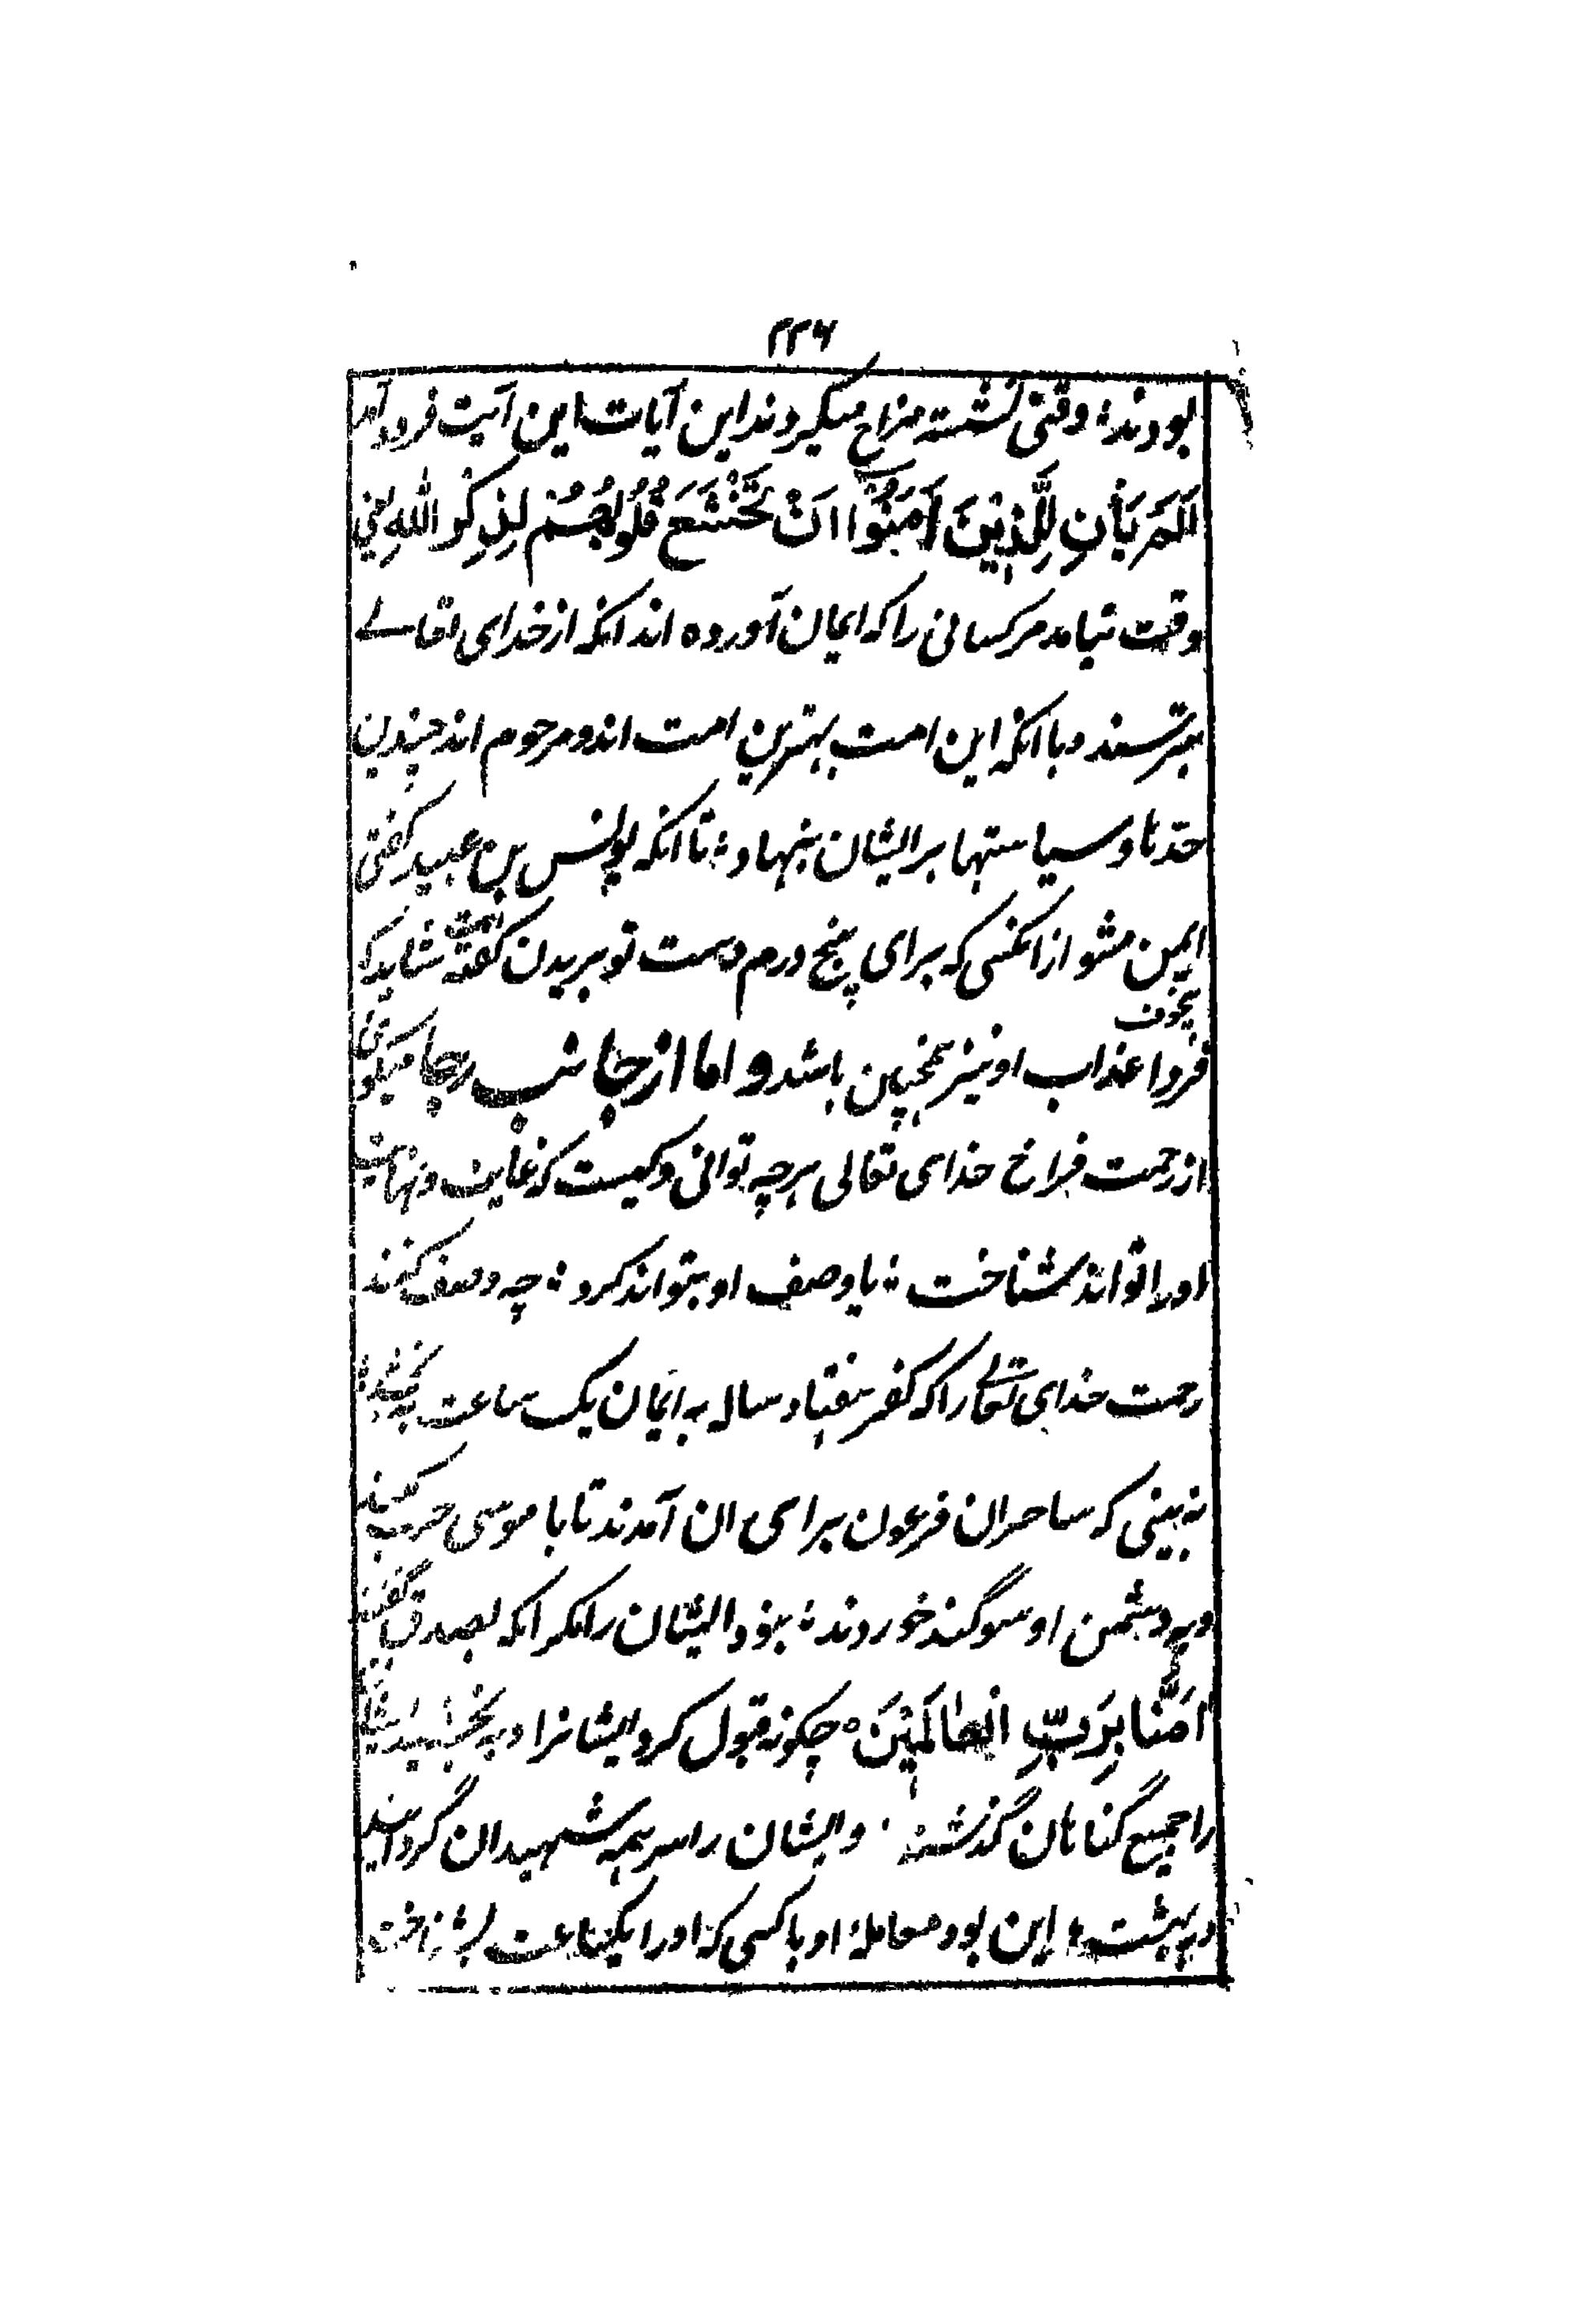 ۲۲۶
بودند؛ وقتی نشسته مزاح میکردند این آیات این آیت فرود آمد
اَلَمْ یَأْنِ لِلَّذِیْنَ اٰمَنُوْا اَنْ تَخْشَعَ قُلُوْبُهُمْ لِذِکْرِ اللهِ یعنی
وقت نیامد مر کسانی را که ایمان آورده اند انکه از خدای تعالے
بترسند و با انکه این امت بهترین امت اند و مرحوم اند چندین
حدها و سیاستها بر ایشان بنهاد؛ تا انکه یونس بن عبید گفتی
ایمن مشو از انکسی که برای پنج درم دست تو بریدن گفته است شاید که
فردا عذاب او نیز همچنان باشد و اما از جانب رجا میگوی
از رحمت فراخ خدای تعالی هر چه توانی و کیست که غایت و نهایت
او را تواند شناخت؛ یا وصف او بتواند کرد؛ چه وصف کنند
رحمت خدای تعالے را که کفر هفتاد ساله به ایمان یک ساعت
نه بینی که ساحران فرعون برای ان آمدند تا با موسی حرب کنند
و به دشمن او سوگند خوردند؛ نبود ایشان را مگر انکه بصدق گفتند
اٰمَنَّا بِرَبِّ الْعٰالَمِیْنَ ٥ چگونه قبول کرد ایشانرا و به بخشید ایشان
را جمیع گناهان گذشته . و ایشان را سر همه شهیدان گردانید
در بهشت؛ این بود معاملهٔ او با کسی که او را یکساعت بشناخت